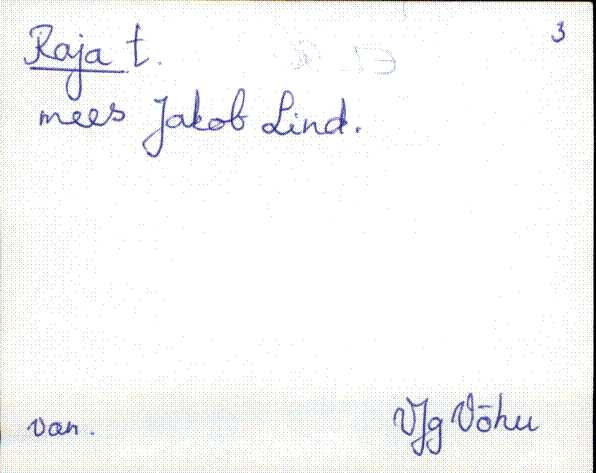 Raja t. 3
mees Jakob Lind.
van. VJg Võhu